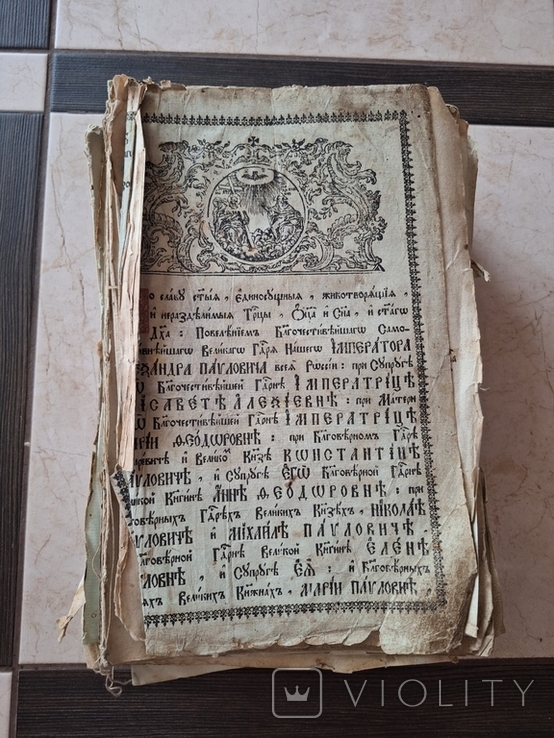 во славу ст҃ыѧ , єдиносꙋщныѧ , животворѧщїѧ ,
и҆ нераздѣлимыѧ Трⷪ҇цы , Ѻ҆ц҃а и҆ Сн҃а , и҆ ст҃агѡ
Дх҃а : Повелѣнїемъ Благочестивѣйшагѡ Само-
Великагѡ Гдⷭ҇рѧ Нашегѡ І҆МПЕРАТОРА
ПАѴЛОВИЧА всеѧ Рѡссїи : при Сꙋпрꙋгѣ
Благочестивѣйшей Гдⷭ҇рнѣ І҆МПЕРАТРІЦѢ
АЛЕѮІЕВНѢ : при Матери
Благочестивѣйшей Гдⷭ҇рнѣ І҆МПЕРАТРІЦѢ
Ѳ҆ЕОДѠРОВНѢ : при Благовѣрномъ Гдⷭ҇рѣ
и҆ Великомъ Кн҃зѣ КѠНСТАНТІНѢ
, и҆ Сꙋпрꙋгѣ Є҆ГѠ̀ Благовѣрной Гдⷭ҇рнѣ
Кнѧгинѣ А҆ННѢ Ѳ҆ЕОДѠРОВНѢ : при
Гдⷭ҇рѣхъ Великихъ Кн҃зѣхъ , НІКОЛАѢ
и҆ МІХАИЛѢ ПАѴЛОВИЧѢ .
Гдⷭ҇рнѣ Великой Кнѧгинѣ Е҆ЛЕНѢ
, и҆ Сꙋпрꙋгѣ Е҆Ѧ̀ : и҆ Благовѣрныхъ
Великихъ Кнѧжнахъ , МАРІИ ПАѴЛОВНѢ ,
VIOLITY